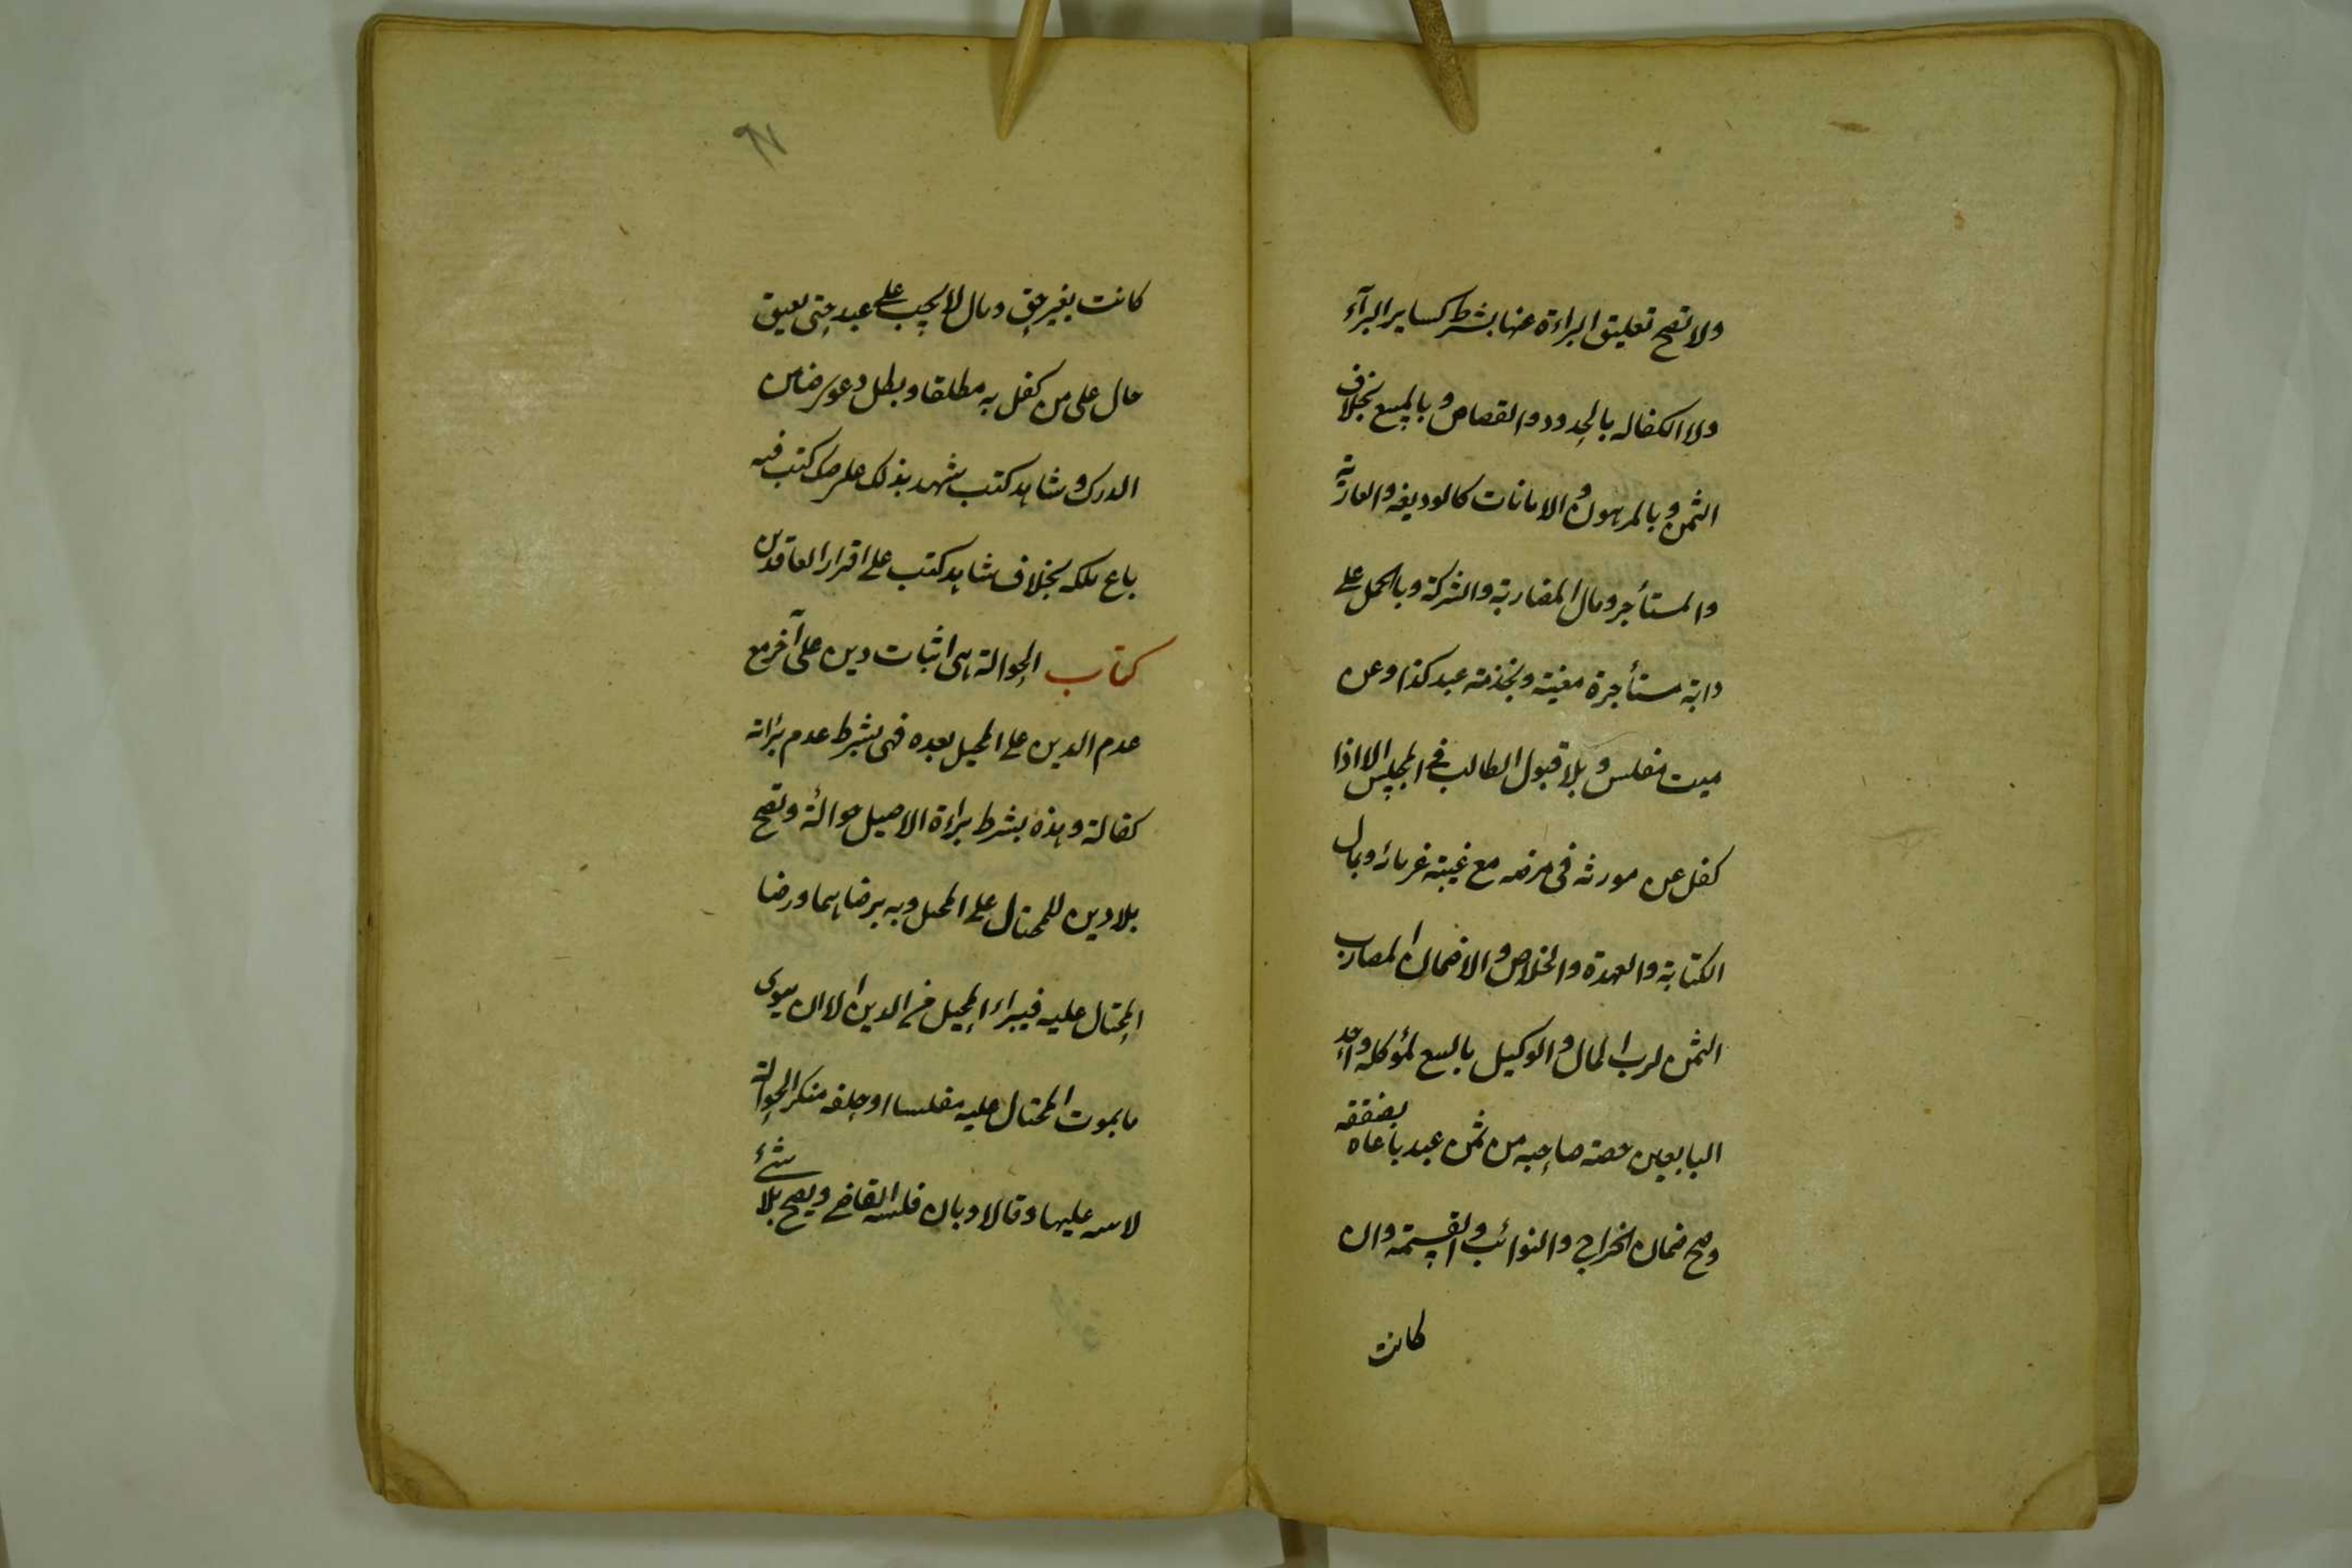 ولا تصح تعليق البراءة عنها بشرط كساير البرآء
ولا الكفاله بالحدود والقصاص وبالمبيع بخلاف
الثمن وبالمرهون والامانات كالوديعه والعارية
والمستأجر ومال المضاربة والشركة وبالحمل على
دابة مستأجرة معينة وبخدمة عبد كذا وعن
ميت مفلس وبلا قبول الطالب في المجلس الا اذا
كفل عن مورثه فى مرضه مع غيبة غرمائه وبمال
الكتابة والعهدة والخلاص والا ضمان المضارب
الثمن لرب المال والوكيل بالبيع لمؤكله واحد
البايعين حصة صاحبه من ثمن عبد باعاه بصفقة
وصح ضمان الخراج والنوائب والقسمة وان
كانت
كانت بغير حق ومال لا يجب على عبد حتى يعتق
حال على من كفل به مطلقا وبطل دعوى ضامن
الدرك وشاهد كتب شهد بذلك على صك كتب فيه
باع ملكه بخلاف شاهد كتب على اقرار العاقدين
كتاب الحوالة هى اثبات دين على آخر مع
عدم الدين على المحيل بعده فهى بشرط عدم برائة
كفالة وهذه بشرط براءة الاصيل حوالة وتصح
بلا دين للمحتال على المحيل وبه برضاهما ورضا
المحتال عليه فيبراء المحيل من الدين الا ان يتوى
ما بموت المحتال عليه مفلسا او حلفه منكر الحوالة
لا بينة عليها وقالا وبان فلسه القاضي ويصح بلا شئ